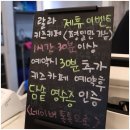 랄라 제휴 이벤트
키즈카페 (평일만 가능)
1시간 30분 이상
예약시 30분 추가
키즈카페 예약후
당일 영수증 인증